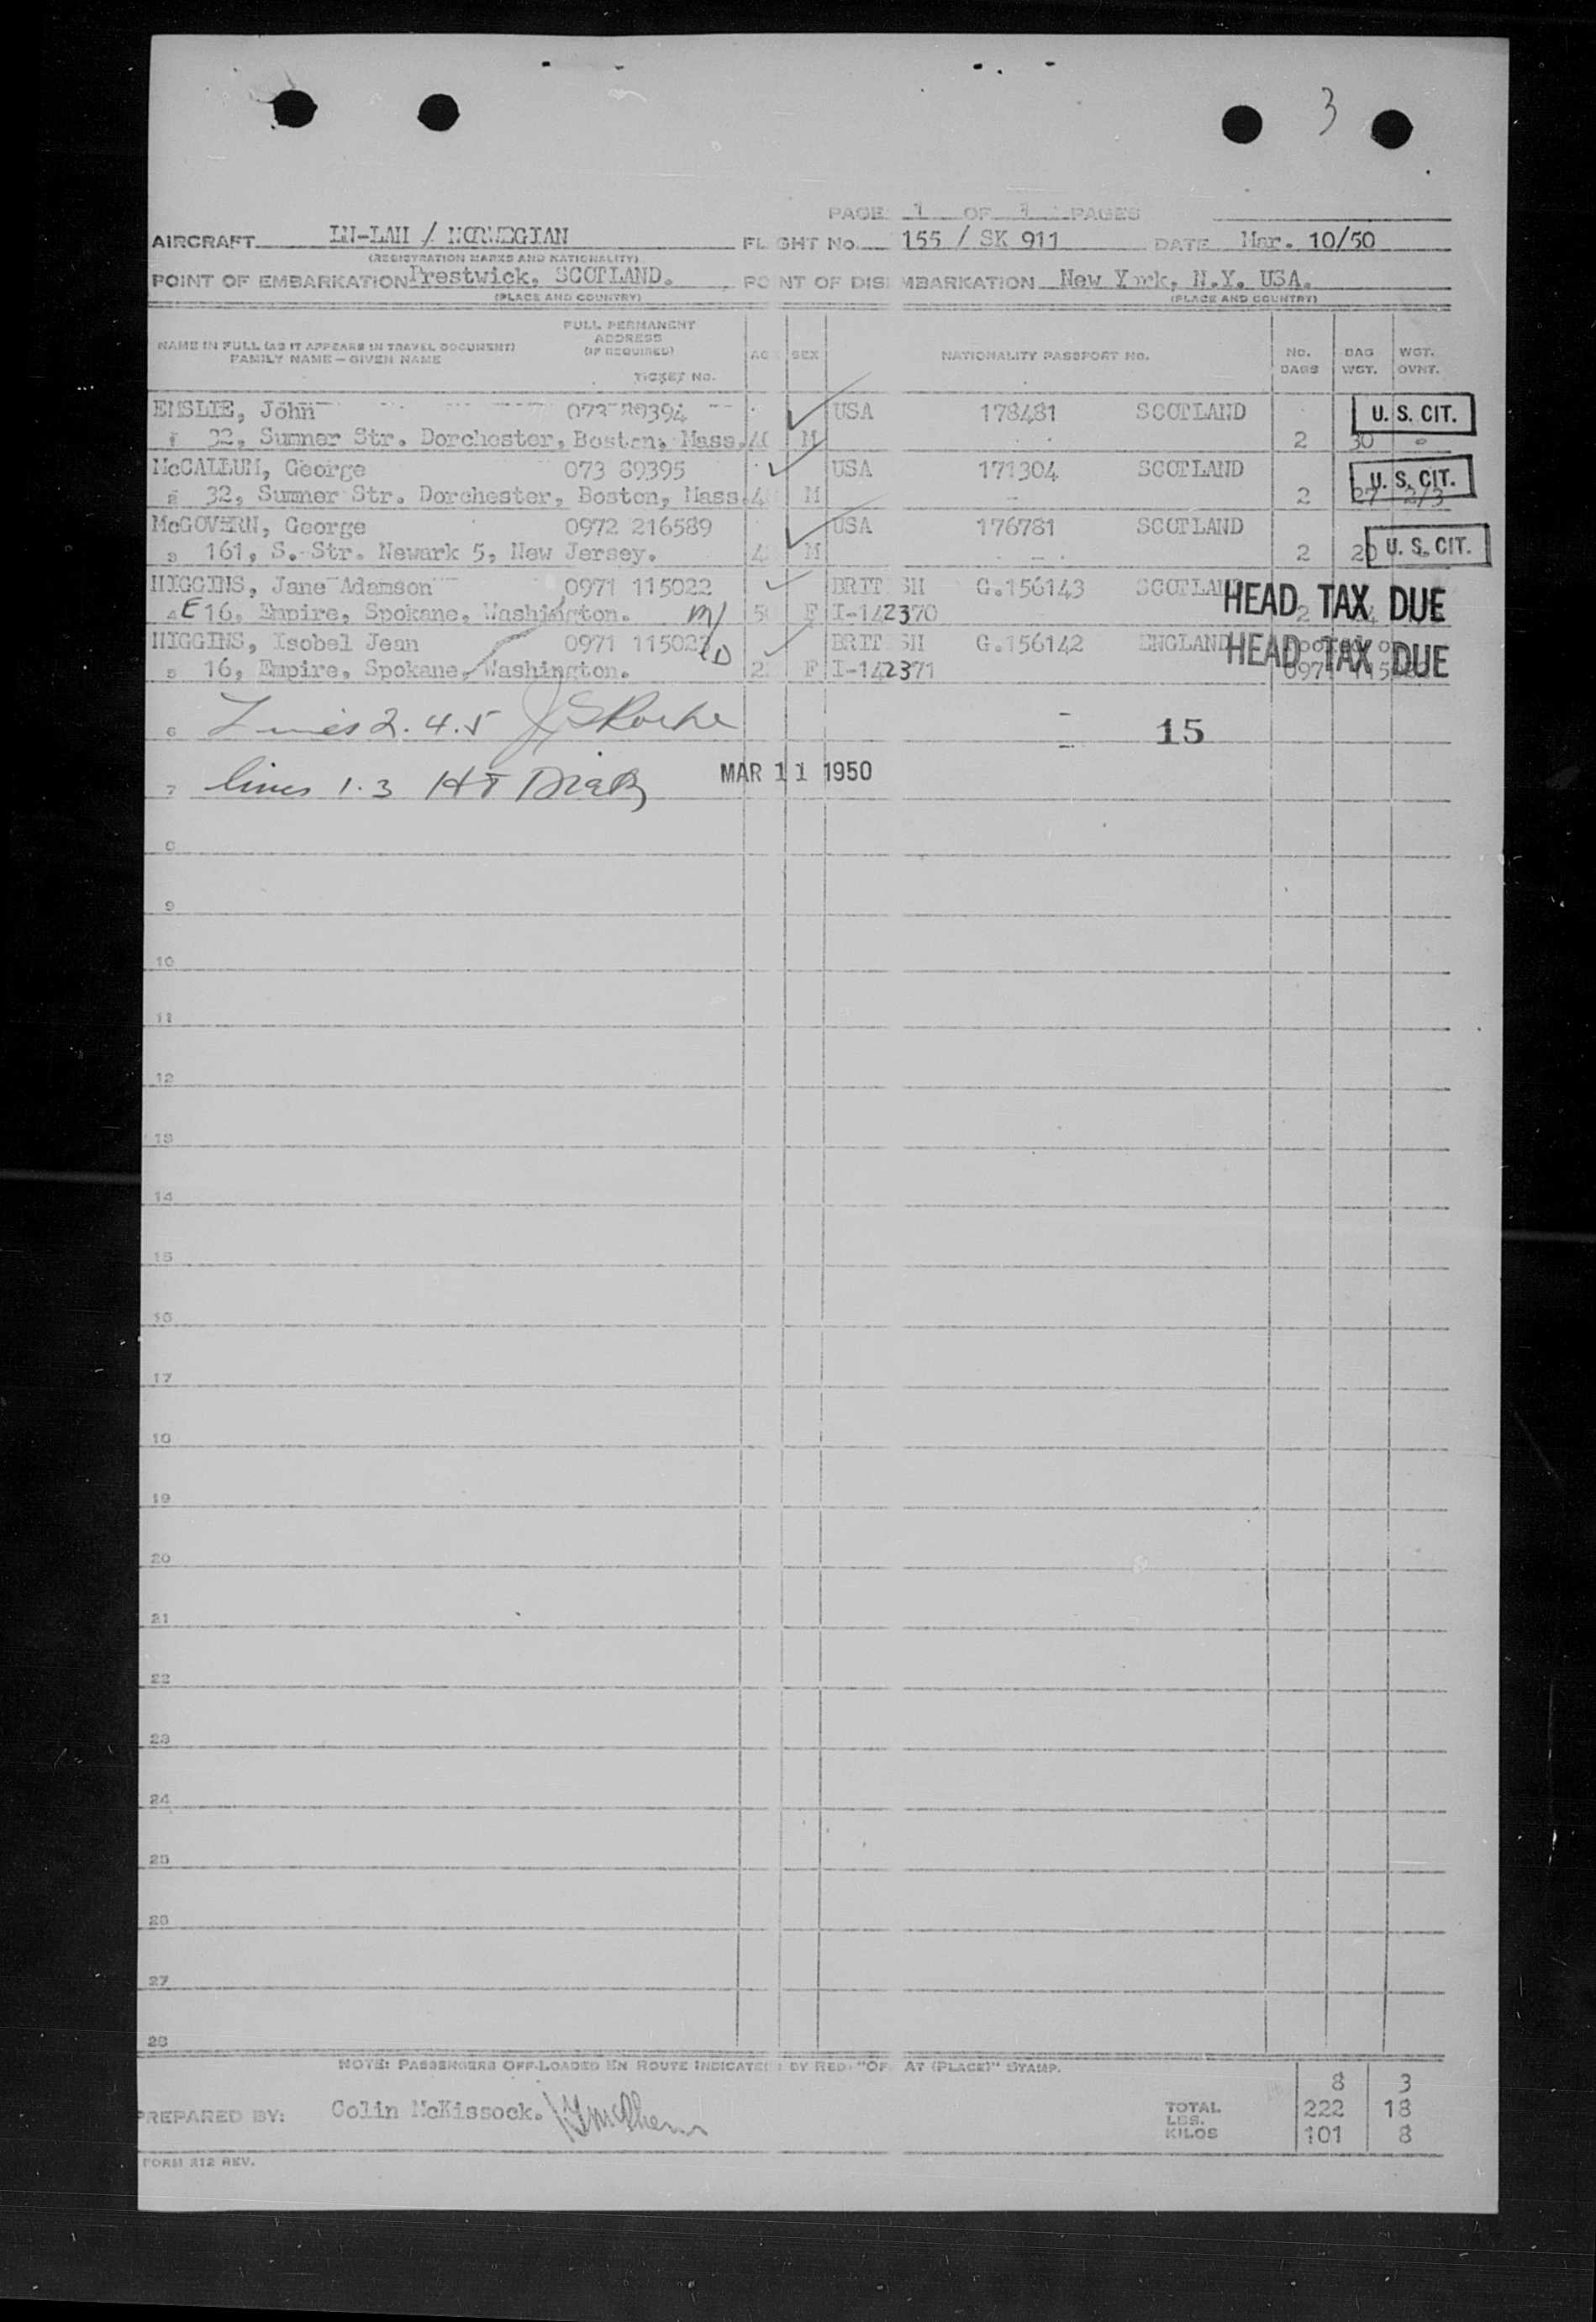 3
PAGE 1 OF 1 PAGES
AIRCRAFT LN-LAH / NORWEGIAN FLIGHT No. 155 / SK 911 DATE Mar. 10/50
(REGISTRATION MARKS AND NATIONALITY)
POINT OF EMBARKATION Prestwick. SCOTLAND. POINT OF DISEMBARKATION New York, N.Y. USA.
(PLACE AND COUNTRY) (PLACE AND COUNTRY)
NAME IN FULL (AS IT APPEARS IN TRAVEL DOCUMENT) FAMILY NAME — GIVEN NAME FULL PERMANENT ADDRESS (IF REQUIRED) TICKET No. AG SEX NATIONALITY PASSPORT No. No. BAGS BAG WGT. WGT. OVNT.
EMSLIE, John 073 89394 USA 178481 SCOTLAND U. S. CIT.
1 32, Sumner Str. Dorchester, Boston, Mass. M 2 30
McCALLUM, George 073 89395 USA 171304 SCOTLAND U. S. CIT.
2 32, Sumner Str. Dorchester, Boston, Mass. 4 M 2 27 2/3
McGOVERN, George 0972 216589 USA 176781 SCOTLAND U. S. CIT.
3 161, S. Str. Newark 5, New Jersey. 4 M 2 20
HIGGINS, Jane Adamson 0971 115022 BRITISH G.156143 SCOTLAND HEAD TAX DUE
4 E 16, Empire, Spokane, Washington. 5 F I-142370 2
HIGGINS, Isobel Jean 0971 115023 BRITISH G.156142 ENGLAND HEAD TAX DUE
5 16, Empire, Spokane, Washington. 2 F I-142371
6 Lines 2. 4. 5 15
7 lines 1. 3 MAR 11 1950
8
9
10
11
12
13
14
15
16
17
18
19
20
21
22
23
24
25
26
27
28
NOTE: PASSENGERS OFF-LOADED EN ROUTE INDICATED BY RED "OFF AT (PLACE)" STAMP.
8 3
PREPARED BY: Colin McKissock. TOTAL LBS. 222 18
KILOS 101 8
FORM 212 REV.